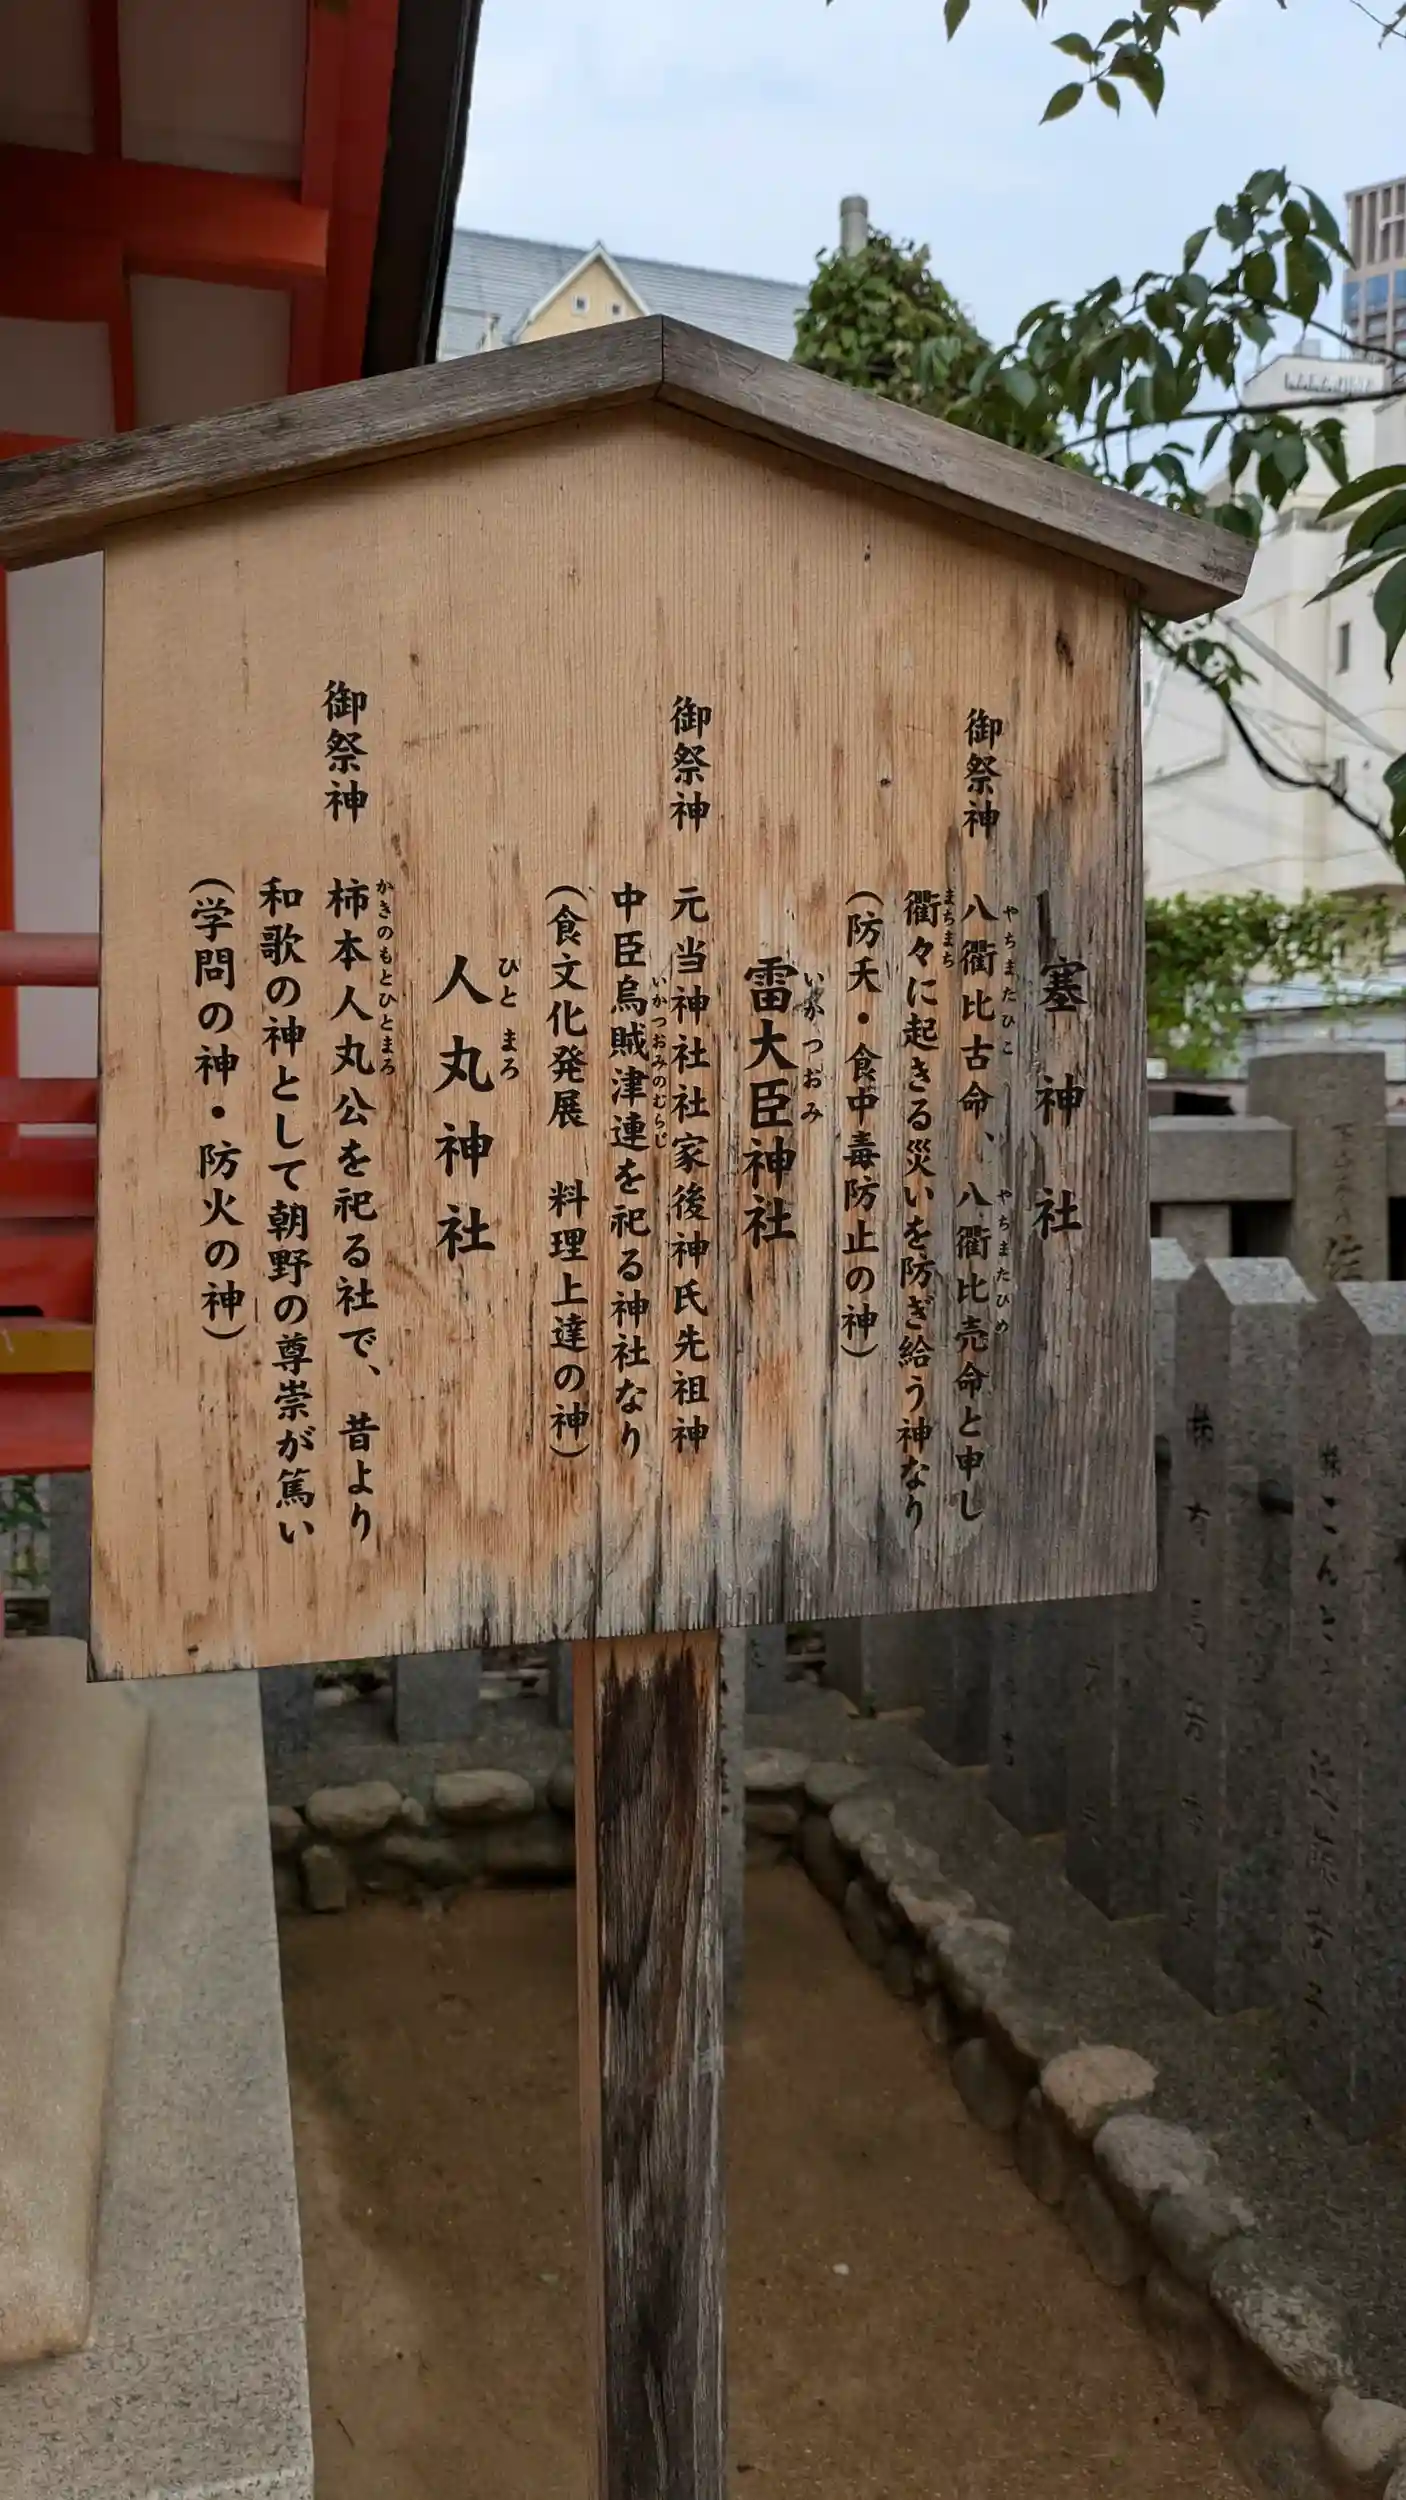 塞神社
御祭神 八衢比古命、八衢比売命と申し
やちまたひこ やちまたひめ
衢々に起きる災いを防ぎ給う神なり
まちまち
（防夭・食中毒防止の神）
雷大臣神社
いかつおみ
御祭神 元当神社社家後神氏先祖神
中臣烏賊津連を祀る神社なり
いかつおみのむらじ
（食文化発展 料理上達の神）
人丸神社
ひとまろ
御祭神 柿本人丸公を祀る社で、昔より
かきのもとひとまろ
和歌の神として朝野の尊崇が篤い
（学問の神・防火の神）